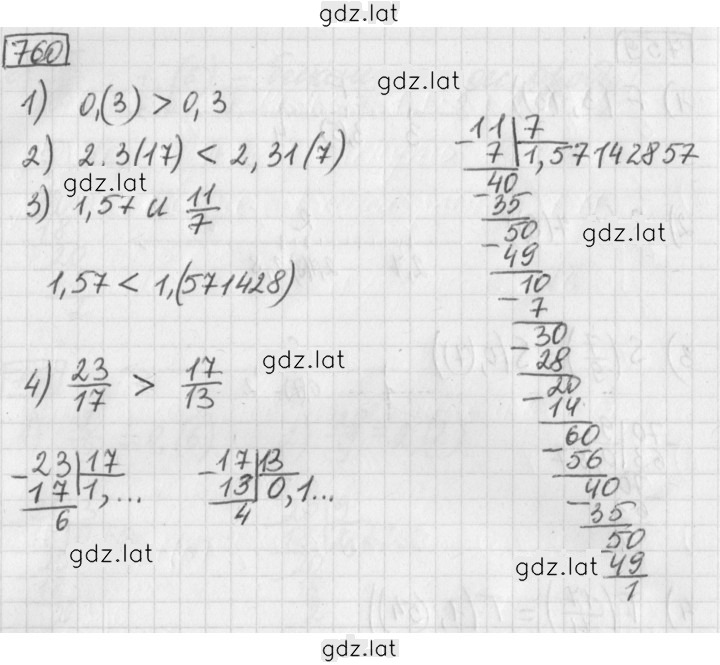 gdz.lat
760
1) 0,(3) > 0,3
gdz.lat
2) 2.3(17) < 2,31(7)
gdz.lat
3) 1,57 и 11/7
1,57 < 1,(571428)
4) 23/17 > 17/13
gdz.lat
-23 | 17
17 | 1,...
6
-17 | 13
13 | 0,1...
4
gdz.lat
-11 | 7
7 | 1,57142857
40
-35
50
gdz.lat
-49
10
-7
30
-28
20
-14
60
-56
40
-35
50
gdz.lat
-49
1
gdz.lat